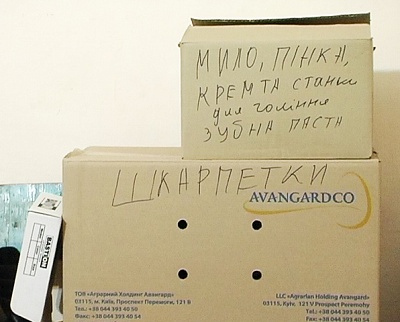 МИЛО, ПІНКА,
КРЕМ ТА станки
для гоління
ЗУБНА ПАСТА
ШКАРПЕТКИ
AVANGARDCO
ТОВ «Аграрний Холдинг Авангард»
03115, м. Київ, Проспект Перемоги, 121 В
Тел.: +38 044 393 40 50
Факс: +38 044 393 40 54
LLC «Agrarian Holding Avangard»
03115, Kyiv, 121 V Prospect Peremohy
Tel.: +38 044 393 40 50
Fax.: +38 044 393 40 54
BASTION